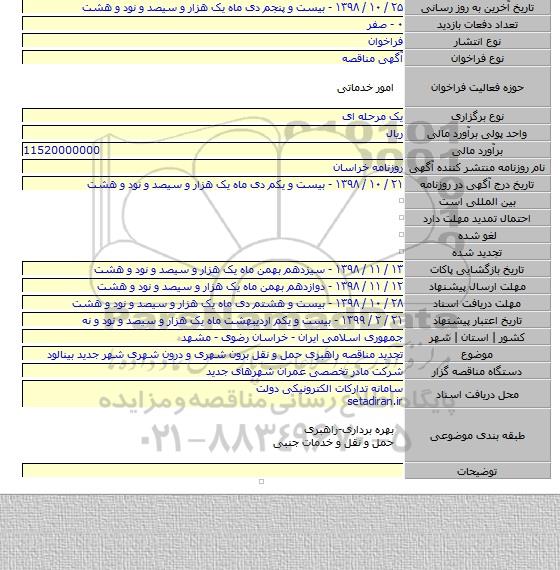 تاریخ آخرین به روز رسانی ۲۵ / ۱۰ / ۱۳۹۸ - بیست و پنجم دی ماه یک هزار و سیصد و نود و هشت
تعداد دفعات بازدید ۰ - صفر
نوع انتشار فراخوان
نوع فراخوان آگهی مناقصه
حوزه فعالیت فراخوان امور خدماتی
نوع برگزاری یک مرحله ای
واحد پولی برآورد مالی ریال
برآورد مالی 11520000000
نام روزنامه منتشر کننده آگهی روزنامه خراسان
تاریخ درج آگهی در روزنامه ۲۱ / ۱۰ / ۱۳۹۸ - بیست و یکم دی ماه یک هزار و سیصد و نود و هشت
بین المللی است
احتمال تمدید مهلت دارد
لغو شده
تجدید شده
تاریخ بازگشایی پاکات ۱۳ / ۱۱ / ۱۳۹۸ - سیزدهم بهمن ماه یک هزار و سیصد و نود و هشت
مهلت ارسال پیشنهاد ۱۲ / ۱۱ / ۱۳۹۸ - دوازدهم بهمن ماه یک هزار و سیصد و نود و هشت
مهلت دریافت اسناد ۲۸ / ۱۰ / ۱۳۹۸ - بیست و هشتم دی ماه یک هزار و سیصد و نود و هشت
تاریخ اعتبار پیشنهاد ۲۱ / ۲ / ۱۳۹۹ - بیست و یکم اردیبهشت ماه یک هزار و سیصد و نود و نه
کشور | استان | شهر جمهوری اسلامی ایران - خراسان رضوی - مشهد
موضوع تجدید مناقصه راهبری حمل و نقل برون شهری و درون شهری شهر جدید بینالود
دستگاه مناقصه گزار شرکت مادر تخصصی عمران شهرهای جدید
محل دریافت اسناد سامانه تدارکات الکترونیکی دولت
setadiran.ir
پایگاه اطلاع رسانی مناقصه و مزایده
طبقه بندی موضوعی بهره برداری-راهبری
حمل و نقل و خدمات جنبی
۰۲۱-۸۸۳۴۹۶۷۰-۵
توضیحات